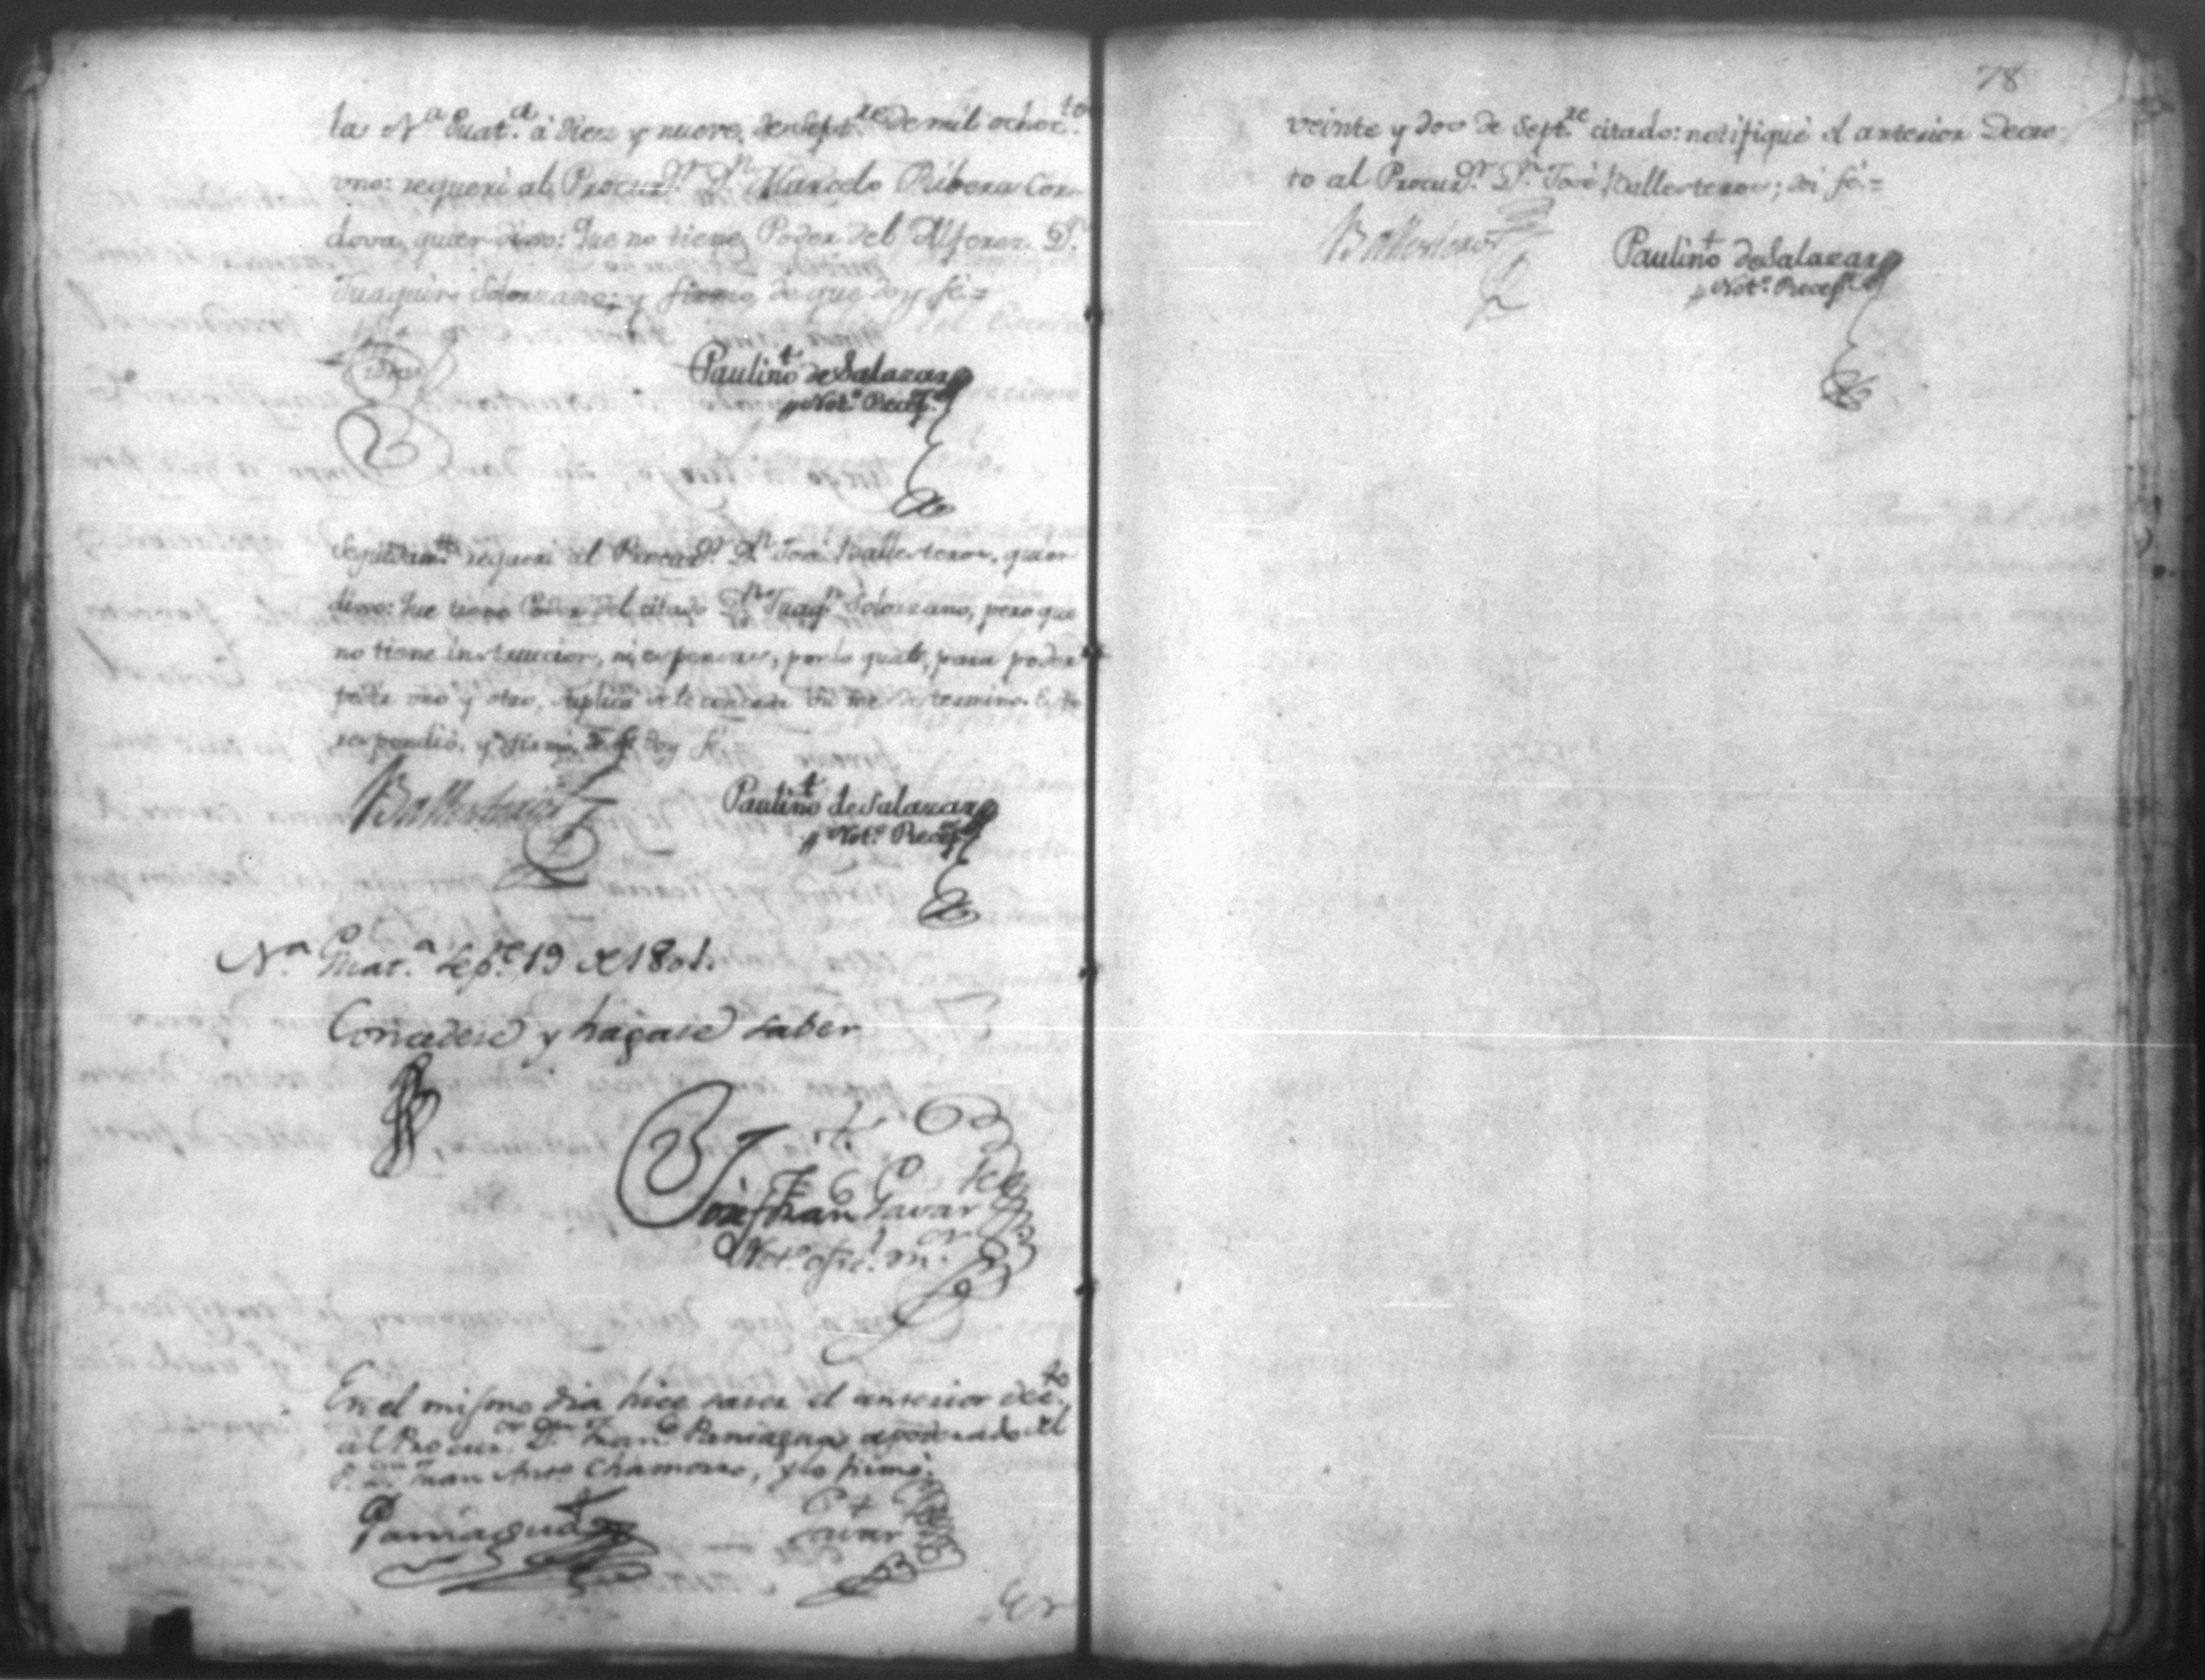 la N.ª Guat.ª á diez y nueve de Sept.re de mil ochoc.tos
uno: requerí al Procur.dr D.n Marcelo Ribera Cor-
dova, quien dixo: Que no tiene Poder del Alferez D.n
Juaquin Solorzano; y firmo, de que doy fé.=
Paulino de Salazar
Not.o Recep.r
Seguidam.te requerí al Procur.dr D.n José Ballesteros, quien
dixo: Que tiene Poder del citado D.n Juaq.n Solorzano, pero que
no tiene instruccion, ni expensas, por lo qual, para poder
pedir uno y otro, suplica se le conceda un mes de termino. Esto
respondió, y firmó, de q.e doy fé.
Ballesteros
Paulino de Salazar
Not.o Recep.r
N.ª Guat.ª Sep.re 19 de 1801.
Concedese y hagase saber
José Fran.co Gavarrete
Not.o ofic.l m.or
En el mismo dia hice saver el anterior dec.to
al Procur.or D.n Fran.co Paniagua apoderado del
P. D.n Juan Ant.o Chamorro, y lo firmó.
Paniagua
Gavarrete
En
78
veinte y dos de Sept.re citado: notifiqué el anterior Decre-
to al Procur.dr D.n José Ballesteros; doi fé.=
Ballesteros
Paulino de Salazar
Not.o Recep.r